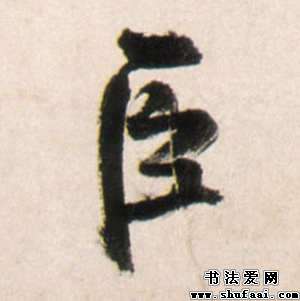 臣
书法爱网
www.shufaai.com